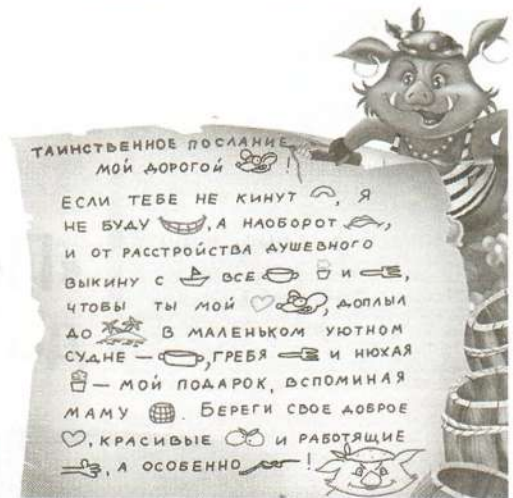 ТАИНСТВЕННОЕ ПОСЛАНИЕ
МОЙ ДОРОГОЙ !
ЕСЛИ ТЕБЕ НЕ КИНУТ , Я
НЕ БУДУ , А НАОБОРОТ ,
И ОТ РАССТРОЙСТВА ДУШЕВНОГО
ВЫКИНУ С ВСЕ И ,
ЧТОБЫ ТЫ МОЙ , ДОПЛЫЛ
ДО В МАЛЕНЬКОМ УЮТНОМ
СУДНЕ — , ГРЕБЯ И НЮХАЯ
— МОЙ ПОДАРОК, ВСПОМИНАЯ
МАМУ . БЕРЕГИ СВОЕ ДОБРОЕ
, КРАСИВЫЕ И РАБОТЯЩИЕ
, А ОСОБЕННО !